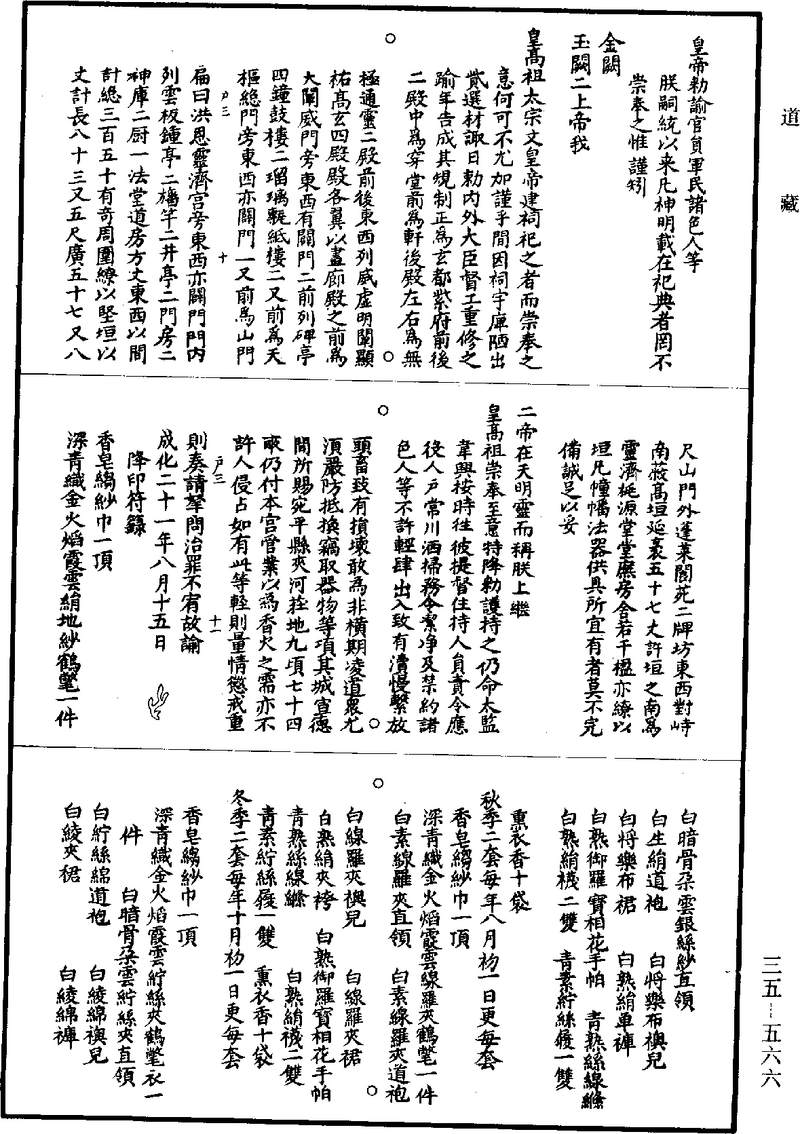 道藏
皇帝勅諭官員軍民諸色人等
朕嗣統以来凡神明載在祀典者罔不
崇奉之惟謹矧
金闕
玉闕二上帝我
皇高祖太宗文皇帝建祠祀之者而崇奉之
意何可不尤加謹乎間因祠宇庳陋出
貲選材諏日勅内外大臣督工重修之
踰年告成其規制正為玄都紫府前後
二殿中為穿堂前為軒後殿左右為無
極通靈二殿前後東西列威虛明闡顯
祐高玄四殿殿各翼以畫廊殿之前為
大闡威門旁東西有闢門二前列碑亭
四鐘鼓樓二瑠璃甎紙樓二又前為天
樞總門旁東西亦闢門一又前為山門
扁曰洪恩靈濟宮旁東西亦闢門門内
列雲板鍾亭二旛竿二井亭二門房二
神庫二厨一法堂道房方丈東西以間
計總三百五十有奇周圍繚以堅垣以
丈計長八十三又五尺廣五十七又八
尸三
十
尺山門外蓬萊閬苑二牌坊東西對峙
南蔽高垣延袤五十七丈許垣之南為
靈濟梃源堂堂廡房舍若干楹亦繚以
垣凡幢幡法器供具所宜有者莫不完
備誠足以妥
二帝在天明靈而稱朕上繼
皇高祖崇奉至意特降勅護持之仍命太監
韋興按時往彼提督住持人負責令應
役人户常川洒掃務令潔淨及禁約諸
色人等不許輕肆出入致有瀆慢繫放
頭畜致有損壞敢為非横期凌道衆尤
湏嚴防抵換竊取器物等項其城宣德
間所賜宛平縣夾河莊地九頃七十四
畝仍付本宮管業以為香火之需亦不
許人侵占如有此等輕則量情懲戒重
則奏請拏問治罪不宥故諭
尸三
十一
成化二十一年八月十五日
降印符籙
香皂縐紗巾一頂
深青織金火焰霞雲絹地紗鶴氅一件
白暗骨朶雲銀絲紗直領
白生絹道袍
白將樂布襖兒
白將樂布裙
白熟絹單褲
白熟御羅寶相花手帕
青熟絲線絛
白熟絹襪二雙
青素紵絲履一雙
熏衣香十袋
秋季二套每年八月初一日更每套
香皂縐紗巾一頂
深青織金火焰霞雲線羅夾鶴氅一件
白素線羅夾直領
白素線羅夾道袍
白線羅夾襖兒
白線羅夾裙
白熟絹夾袴
白熟御羅寶相花手帕
青熟絲線絛
白熟絹襪二雙
青素紵絲履一雙
熏衣香十袋
冬季二套每年十月初一日更每套
香皂縐紗巾一頂
深青織金火焰霞雲紵絲夾鶴氅衣一
件
白暗骨朶雲紵絲夾直領
白紵絲綿道袍
白綾綿襖兒
白綾夾裙
白綾綿褲
三五—五六六